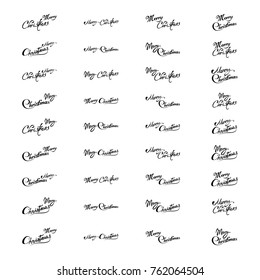 Merry Christmas Merry Christmas Merry Christmas Merry Christmas
Merry Christmas Merry Christmas Merry Christmas Merry Christmas
Merry Christmas Merry Christmas Merry Christmas Merry Christmas
Merry Christmas Merry Christmas Merry Christmas Merry Christmas
Merry Christmas Merry Christmas Merry Christmas Merry Christmas
Merry Christmas Merry Christmas Merry Christmas Merry Christmas
Merry Christmas Merry Christmas Merry Christmas Merry Christmas
Merry Christmas Merry Christmas Merry Christmas Merry Christmas
Merry Christmas Merry Christmas Merry Christmas Merry Christmas
shutterstock.com · 762064504